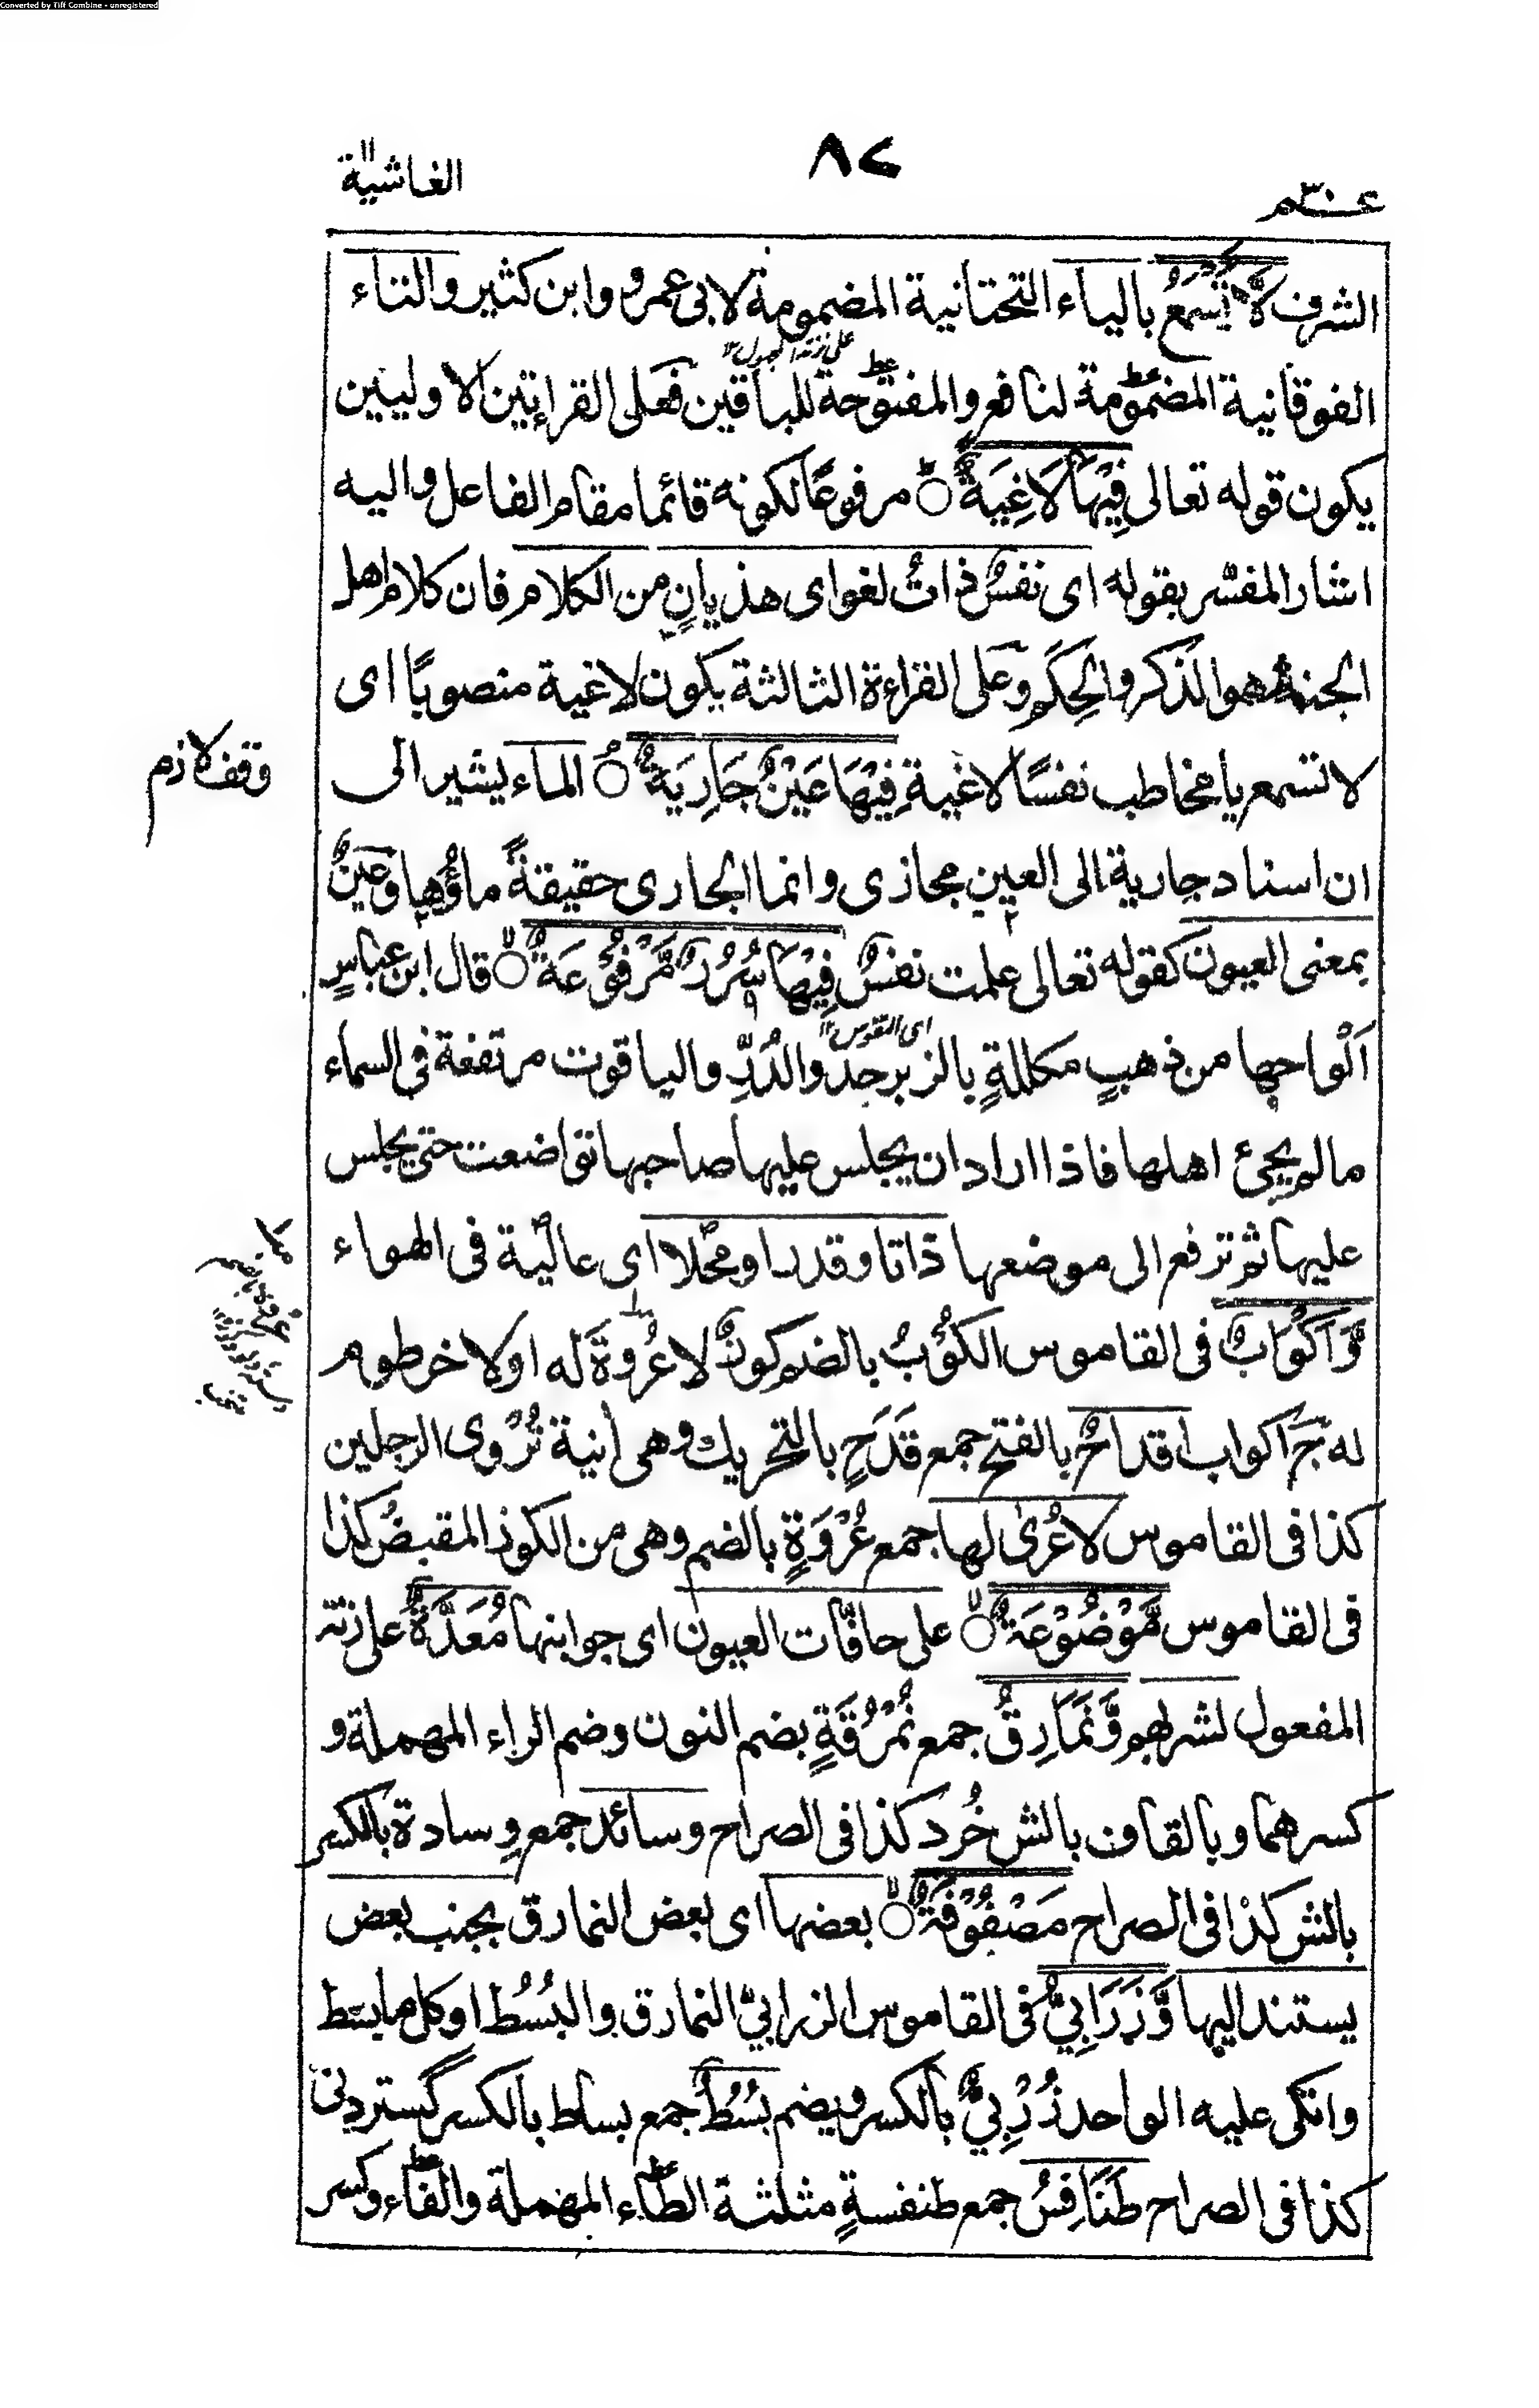 Converted by Tiff Combine - unregistered
عـم ٣٠
٨٧
الغاشية
الشرف لَا تُسْمَعُ بالياء التحتانية المضمومة لابى عمرو وابن كثير والتاء
على زنة المجهول ١٢
الفوقانية المضمومة لنافع والمفتوحة للباقين فعلى القرايتين الاوليين
يكون قوله تعالى فِيْهَا لَاغِيَةٌ مرفوعًا لكونه قائما مقام الفاعل واليه
اشار المفسّر بقوله اى نفسٌ ذاتُ لغو اى هذيانٍ من الكلام فان كلام اهل
الجنة هو الذكر والحِكَم وعلى القراءة الثالثة يكون لاغية منصوبًا اى
لا تسمع يا مخاطب نفسًا لاغيةً فِيْهَا عَيْنٌ جَارِيَةٌ الماء يشير الى
وقف لازم
ان اسناد جارية الى العين مجازى وانما الجارى حقيقةً ماؤُها وعينٌ
بمعنى العيون كقوله تعالى علمت نفسٌ فِيْهَا سُرُرٌ مَّرْفُوْعَةٌ قال ابن عباسٍ
اى القوس ١٢
اَلْواحها من ذهبٍ مكللةٍ بالزبرجد والدُّرِّ والياقوت مرتفعة فى السماء
مالم يجئ اهلها فاذا اراد ان يجلس عليها صاحبها تواضعت حتى يجلس
عليها ثم ترفع الى موضعها ذاتا وقدرا ومحلا اى عالية فى الهواء
وَّاَكْوَابٌ فى القاموس الكُوْبُ بالضم كوزٌ لا عُروةَ له او لا خرطوم
له ج اكواب اقداحٌ بالفتح جمع قَدَحٍ بالتحريك وهى اٰنية تُرْوى الرجلين
كذا فى القاموس لا عُرىٰ لها جمع عُرْوَةٍ بالضم وهى من الكوز المقبضُ كذا
فى القاموس مَّوْضُوْعَةٌ على حافّات العيون اى جوانبها مُعَدَّةٌ على زنة
المفعول لشربهم وَّنَمَارِقُ جمع نُمْرُقَةٍ بضم النون وضم الراء المهملة و
كسرهما وبالقاف بالش خُرد كذا فى الصراح وسائد جمع وِسادة بالكسر
بالش كذا فى الصراح مَصْفُوْفَةٌ بعضها اى بعض النمارق بجنب بعض
يستند اليها وَّزَرَابِيُّ فى القاموس الزرابيّ النمارق والبُسُط او كل ما بسط
واتكى عليه الواحد زُرْبِيٌّ بالكسر ويضم بُسُطٌ جمع بساط بالكسر گستردنى
كذا فى الصراح طَنَافِسُ جمع طنفسةٍ مثلثة الطاء المهملة والفاء وكسر